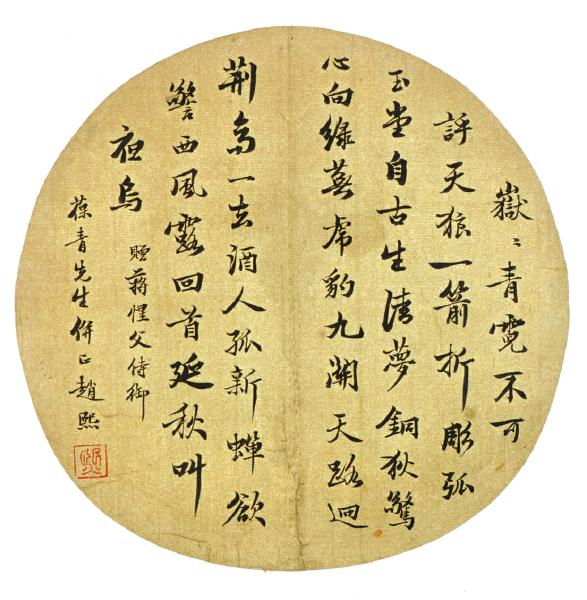 嶽〻青霓不可
呼天狼一箭折彫弧
玉堂自古生清夢銅狄驚
心向綠蕪虎豹九關天路迥
荆高一去酒人孤新蟬欲
警西風露回首延秋叫
夜烏
贈蔣惺父侍御
葆青先生併正趙熙